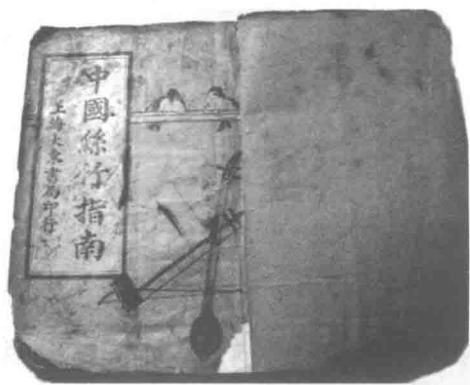 中國絲竹指南
上海大東書局印行